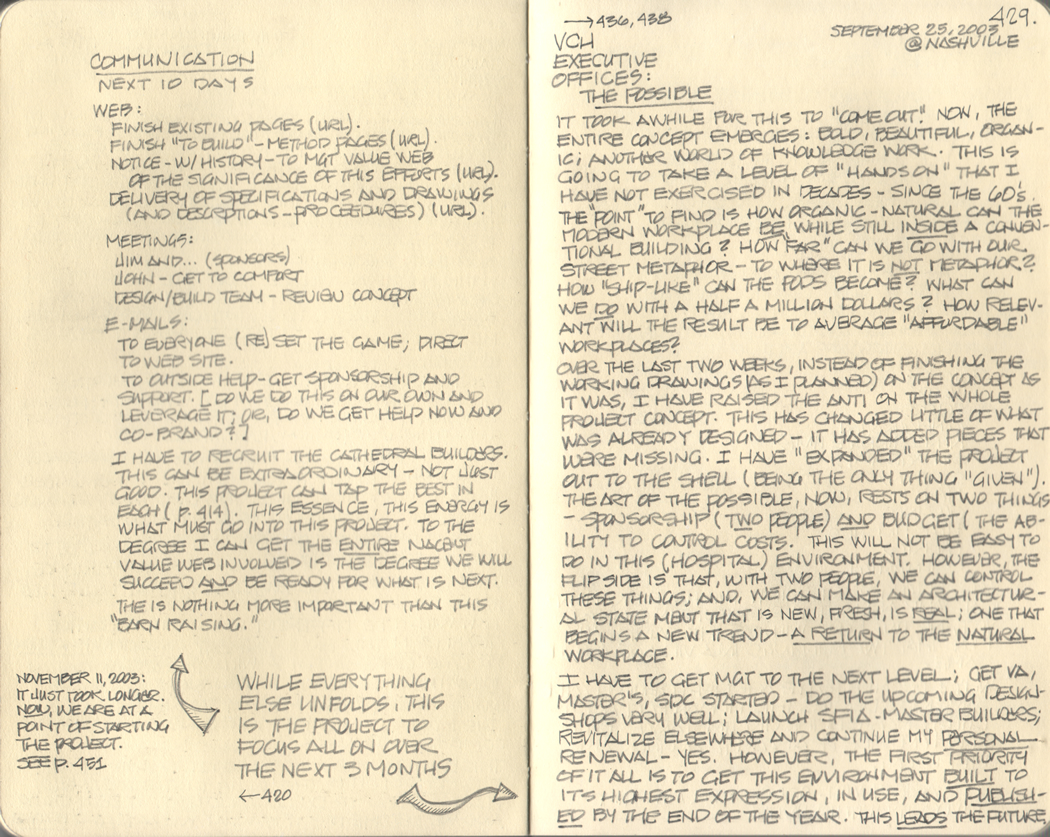 COMMUNICATION
NEXT 10 DAYS
WEB:
FINISH EXISTING PAGES (URL).
FINISH "TO BUILD" - METHOD PAGES (URL).
NOTICE - W/ HISTORY - TO MGT VALUE WEB
OF THE SIGNIFICANCE OF THIS EFFORTS (URL).
DELIVERY OF SPECIFICATIONS AND DRAWINGS
(AND DESCRPTIONS - PROCEEDURES) (URL).
MEETINGS:
JIM AND... (SPONSORS)
JOHN - GET TO COMFORT
DESIGN/BUILD TEAM - REVIEW CONCEPT
E-MAILS:
TO EVERYONE (RE) SET THE GAME; DIRECT
TO WEB SITE.
TO OUTSIDE HELP - GET SPONSORSHIP AND
SUPPORT. [DO WE DO THIS ON OUR OWN AND
LEVERAGE IT; OR, DO WE GET HELP NOW AND
CO-BRAND?]
I HAVE TO RECRUIT THE CATHEDRAL BUILDERS.
THIS CAN BE EXTRAORDINARY - NOT JUST
GOOD. THIS PROJECT CAN TAP THE BEST IN
EACH (P. 414). THIS ESSENCE, THIS ENERGY IS
WHAT MUST GO INTO THIS PROJECT. TO THE
DEGREE I CAN GET THE ENTIRE NASCENT
VALUE WEB INVOLVED IS THE DEGREE WE WILL
SUCCEED AND BE READY FOR WHAT IS NEXT.
THE IS NOTHING MORE IMPORTANT THAN THIS
"BARN RAISING."
NOVEMBER 11, 2003:
IT JUST TOOK LONGER.
NOW, WE ARE AT A
POINT OF STARTING
THE PROJECT.
SEE P. 451
WHILE EVERYTHING
ELSE UNFOLDS, THIS
IS THE PROJECT TO
FOCUS ALL ON OVER
THE NEXT 3 MONTHS
←420
→436, 438
429.
SEPTEMBER 25, 2003
@ NASHVILLE
VCH
EXECUTIVE
OFFICES:
THE POSSIBLE
IT TOOK AWHILE FOR THIS TO "COME OUT." NOW, THE
ENTIRE CONCEPT EMERGES: BOLD, BEAUTIFUL, ORGAN-
IC; ANOTHER WORLD OF KNOWLEDGE WORK. THIS IS
GOING TO TAKE A LEVEL OF "HANDS ON" THAT I
HAVE NOT EXERCISED IN DECADES - SINCE THE 60's.
THE "POINT" TO FIND IS HOW ORGANIC - NATURAL CAN THE
MODERN WORKPLACE BE, WHILE STILL INSIDE A CONVEN-
TIONAL BUILDING? HOW "FAR" CAN WE GO WITH OUR
STREET METAPHOR - TO WHERE IT IS NOT METAPHOR?
HOW "SHIP-LIKE" CAN THE PODS BECOME? WHAT CAN
WE DO WITH A HALF A MILLION DOLLARS? HOW RELEV-
ANT WILL THE RESULT BE TO AVERAGE "AFFORDABLE"
WORKPLACES?
OVER THE LAST TWO WEEKS, INSTEAD OF FINISHING THE
WORKING DRAWINGS (AS I PLANNED) ON THE CONCEPT AS
IT WAS, I HAVE RAISED THE ANTI ON THE WHOLE
PROJECT CONCEPT. THIS HAS CHANGED LITTLE OF WHAT
WAS ALREADY DESIGNED - IT HAS ADDED PIECES THAT
WERE MISSING. I HAVE "EXPANDED" THE PROJECT
OUT TO THE SHELL (BEING THE ONLY THING "GIVEN").
THE ART OF THE POSSIBLE, NOW, RESTS ON TWO THINGS
- SPONSORSHIP (TWO PEOPLE) AND BUDGET (THE AB-
ILITY TO CONTROL COSTS. THIS WILL NOT BE EASY TO
DO IN THIS (HOSPITAL) ENVIRONMENT. HOWEVER, THE
FLIP SIDE IS THAT, WITH TWO PEOPLE, WE CAN CONTROL
THESE THINGS; AND, WE CAN MAKE AN ARCHITECTUR-
AL STATE MENT THAT IS NEW, FRESH, IS REAL; ONE THAT
BEGINS A NEW TREND - A RETURN TO THE NATURAL
WORKPLACE.
I HAVE TO GET MGT TO THE NEXT LEVEL; GET VA,
MASTER'S, SDC STARTED - DO THE UPCOMING DESIGN-
SHOPS VERY WELL; LAUNCH SFIA - MASTER BUILDERS;
REVITALIZE ELSEWHERE AND CONTINUE MY PERSONAL
RENEWAL - YES. HOWEVER, THE FIRST PRIORITY
OF IT ALL IS TO GET THIS ENVIRONMENT BUILT TO
IT'S HIGHEST EXPRESSION, IN USE, AND PUBLISH-
ED BY THE END OF THE YEAR. THIS LEADS THE FUTURE.